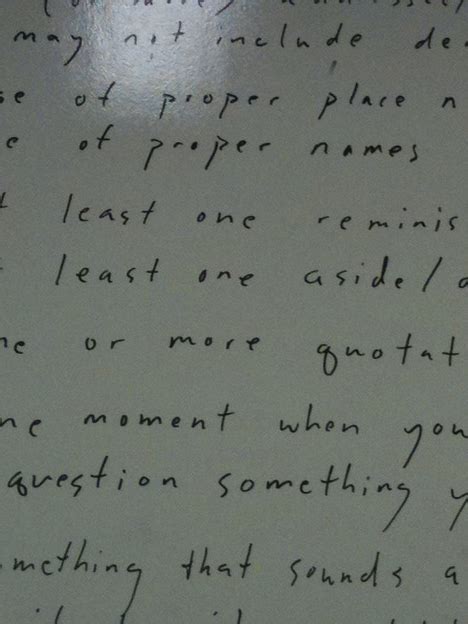 may not include de
se of proper place n
e of proper names
t least one reminis
t least one aside/
ne or more quotat
ne moment when you
question something y
mething that sounds a